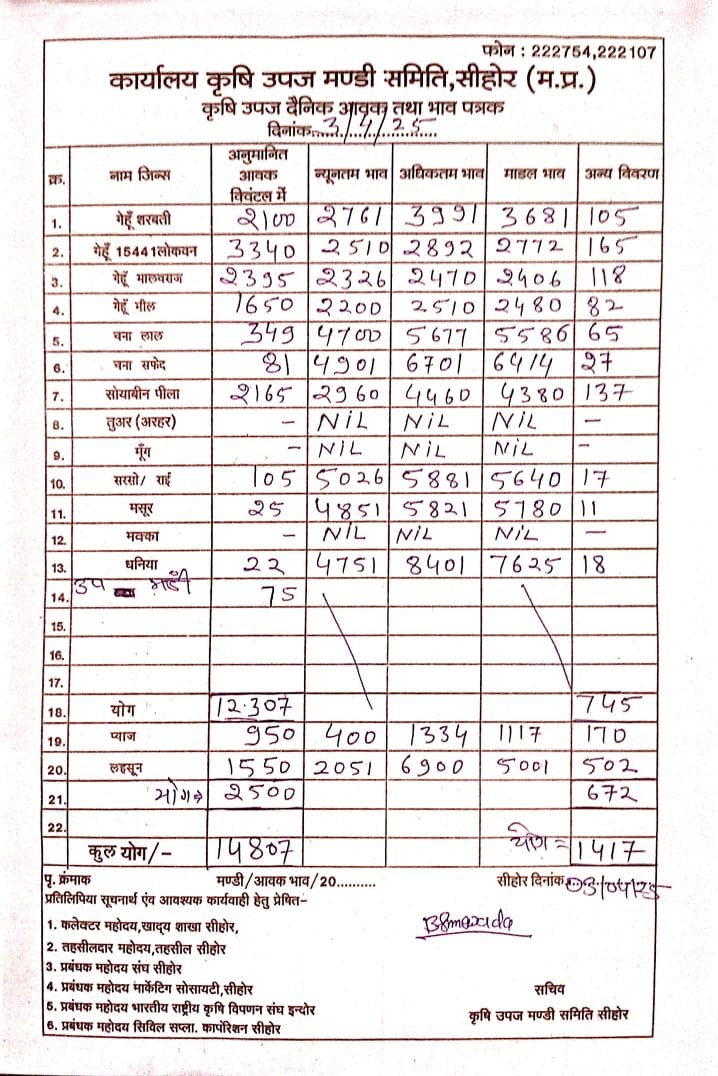 फोन : 222754,222107
कार्यालय कृषि उपज मण्डी समिति,सीहोर (म.प्र.)
कृषि उपज दैनिक आवक तथा भाव पत्रक
दिनांक...3/4/25...
क्र. नाम जिन्स अनुमानित आवक क्विंटल में न्यूनतम भाव अधिकतम भाव माडल भाव अन्य विवरण
1. गेहूँ शरबती 2100 2761 3991 3681 105
2. गेहूँ 15441लोकवन 3340 2510 2892 2772 165
3. गेहूँ मालवराज 2395 2326 2470 2406 118
4. गेहूँ मील 1650 2200 2510 2480 82
5. चना लाल 349 4700 5677 5586 65
6. चना सफेद 81 4901 6701 6414 27
7. सोयाबीन पीला 2165 2960 4460 4380 137
8. तुअर (अरहर) – NiL NiL NiL –
9. मूँग – NIL NiL NiL –
10. सरसो/ राई 105 5026 5881 5640 17
11. मसूर 25 4851 5821 5780 11
12. मक्का – NIL NiL NIL –
13. धनिया 22 4751 8401 7625 18
14. उप मंडी 75
15.
16.
17.
18. योग 12.307 745
19. प्याज 950 400 1334 1117 170
20. लहसून 1550 2051 6900 5001 502
21. योग→ 2500 672
22.
कुल योग/- 14807 योग = 1417
पृ. क्रंमाक मण्डी/आवक भाव/20.......... सीहोर दिनांक 03/04/25
प्रतिलिपिया सूचनार्थ एंव आवश्यक कार्यवाही हेतु प्रेषित-
1. कलेक्टर महोदय,खाद्य शाखा सीहोर,
2. तहसीलदार महोदय,तहसील सीहोर
3. प्रबंधक महोदय संघ सीहोर
4. प्रबंधक महोदय मार्केटिग सोसायटी,सीहोर सचिव
5. प्रबंधक महोदय भारतीय राष्ट्रीय कृषि विपणन संघ इन्दोर कृषि उपज मण्डी समिति सीहोर
6. प्रबंधक महोदय सिविल सप्ला. कार्पोरेशन सीहोर